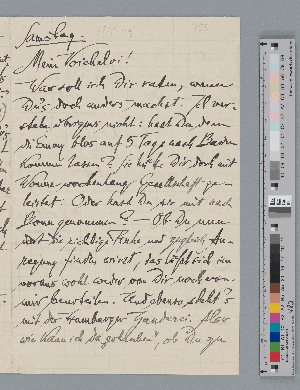 Samstag.
Mein Voichelei!
Was soll ich Dir raten, wenn
Du's doch anders machst. Ich ver-
stehe übrigens nicht: hast Du denn
die Emmy blos auf 5 Tage nach Baden
kommen lassen? Sie hätte Dir doch mit
Wonne wochenlang Gesellschaft ge-
leistet. Oder hast Du sie mit nach
genommen? — Ob Du nun
dort die richtige Ruhe und zugleich An-
regung finden wirst, das läßt sich im
voraus wohl weder von Dir noch von
mir beurteilen. Und ebenso steht's
mit der Hamburger . Aber
wie kann ich da , ob Du zu